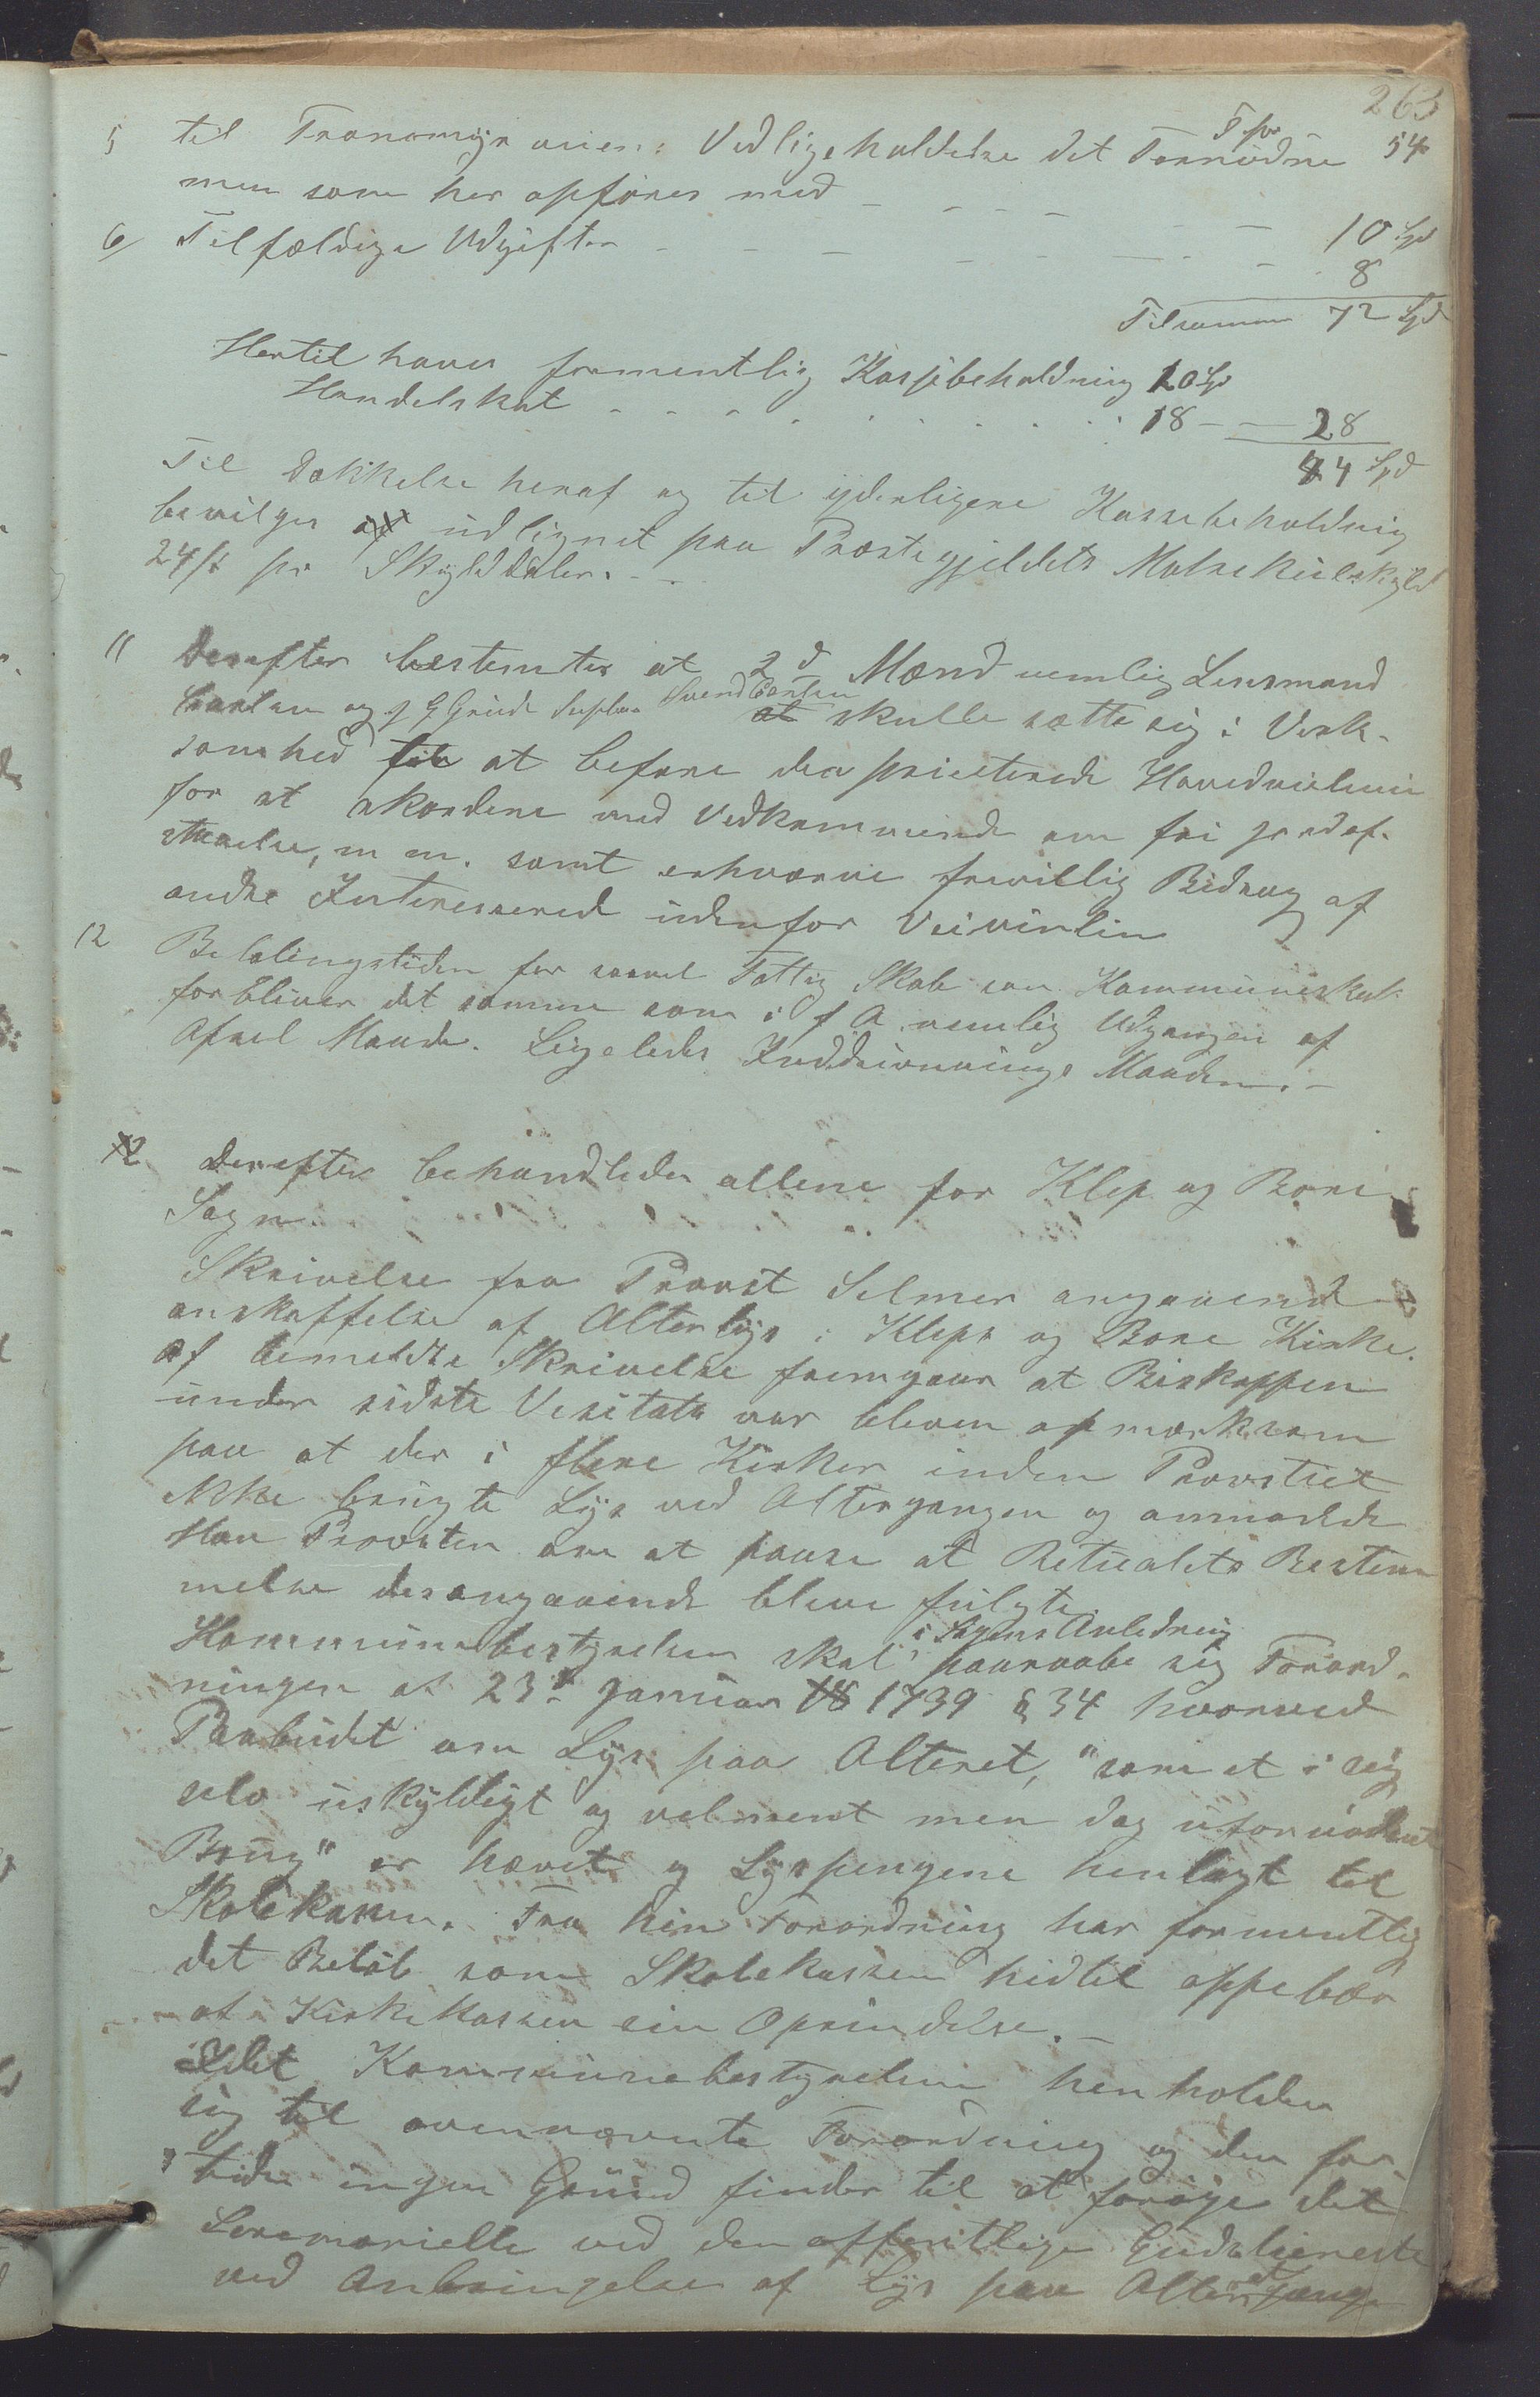 263
5 til Tranamyrveiens Vedligeholdelse det Fornødne Tpr 54
men som her opføres med - - - - - - 10 Spd
6/ Tilfældige Udgifter - - - - - - 8
Tilsammen 72 Spd
Hertil haves formentlig Kassebeholdning 10 Spd
Handelskat - - - - 18 - - 28
44 Spd
Til Dækkelse heraf og til yderligere Kassebeholdnig
bevilges udlignet paa Præstegjeldets Matrekulskyld
24 ß pr Skylddaler. -
11 Derefter bestemtes at 2d Mænd nemlig Lensmand
Carlsen og J G Grude Suplea. Svend Eentsen at skulle sætte sig i Virk-
somhed til at befare den priecterede Hovedveilinie
for at akordere med Vedkommende om fri Jordaf-
staaelse, m m. samt erhværve frivillig Bidrag af
andre Interesserede udenfor Veivirlin
12 Betalingstiden for saavel Fattig Skole som Kommuneskat
forbliver det samme som i f A nemlig Udgangen af
April Maaned. Ligeledes Inddrivnings Maaden. -
12 Derefter behandledes allene for Klep og Bore
Sogn.
Skrivelse fra Provst Selmer angaaende
anskaffelse af Alterlys i Kleps og Bore Kirke.
Af bemeldte Skrivelse fremgaar at Biskoppen
under sidste Visitats var bleven opmærksom
paa at der i flere Kirker inden Provstiet
ikke brugte Lys ved Altergangen og anmodede
Han Provsten om at paase at Ritualets Bestem
melse desangaaende bleve fulgte.
Kommunebestyrelsen skal i Sagens Anledning paaraabe sig Forord-
ningen af 23d Januar 18 1739 § 34 hvorved
Paabudet om Lys paa Alteret, "som et i sig
selv uskyldigt og velmeent men dog ufornødent
Brug" er hævet og Lyspengene henlagt til
Skolekassen. Fra hin Forordning har formentlig
det Beløb som Skolekassen hidtil oppebær
af Kirkekassen sin Oprindelse. -
Idet Kommunebestyrelsen henholder
sig til ovennævnte Forordning og den for-
tiden ingen Grund finder til at forøge det
Seremonielle ved den offentlige Gudstieneste
ved Anbringelse af Lys paa Alteret